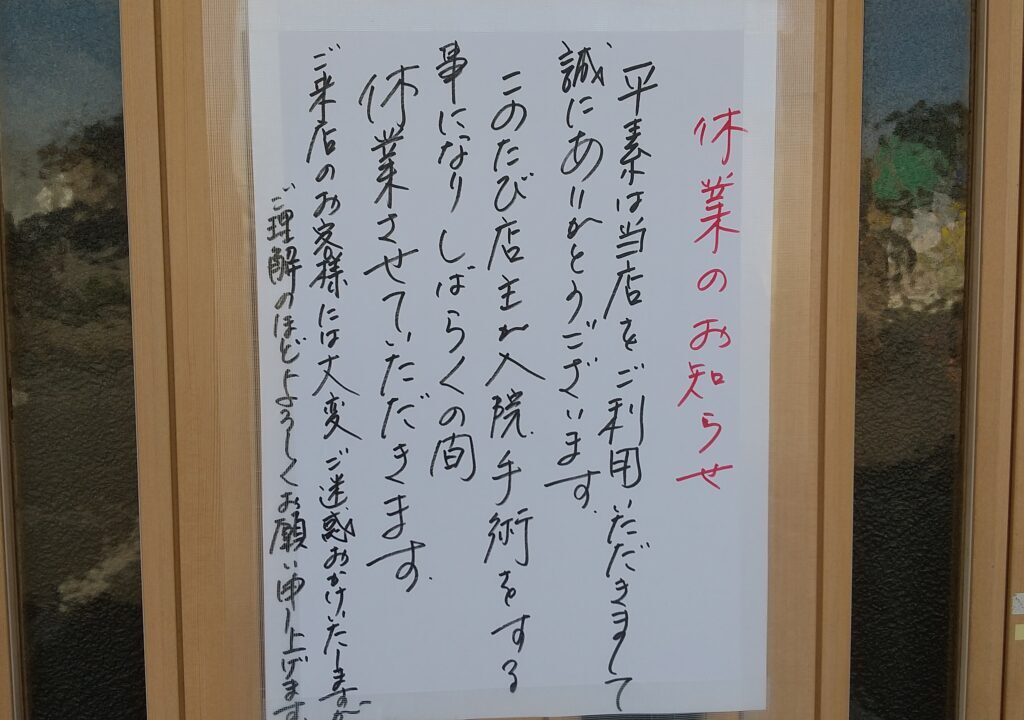 休業のお知らせ
平素は当店をご利用いただきまして
誠にありがとうございます。
このたび店主が入院、手術をする
事になりしばらくの間
休業させていただきます。
ご来店のお客様には大変ご迷惑おかけいたしますが
ご理解のほどよろしくお願い申し上げます